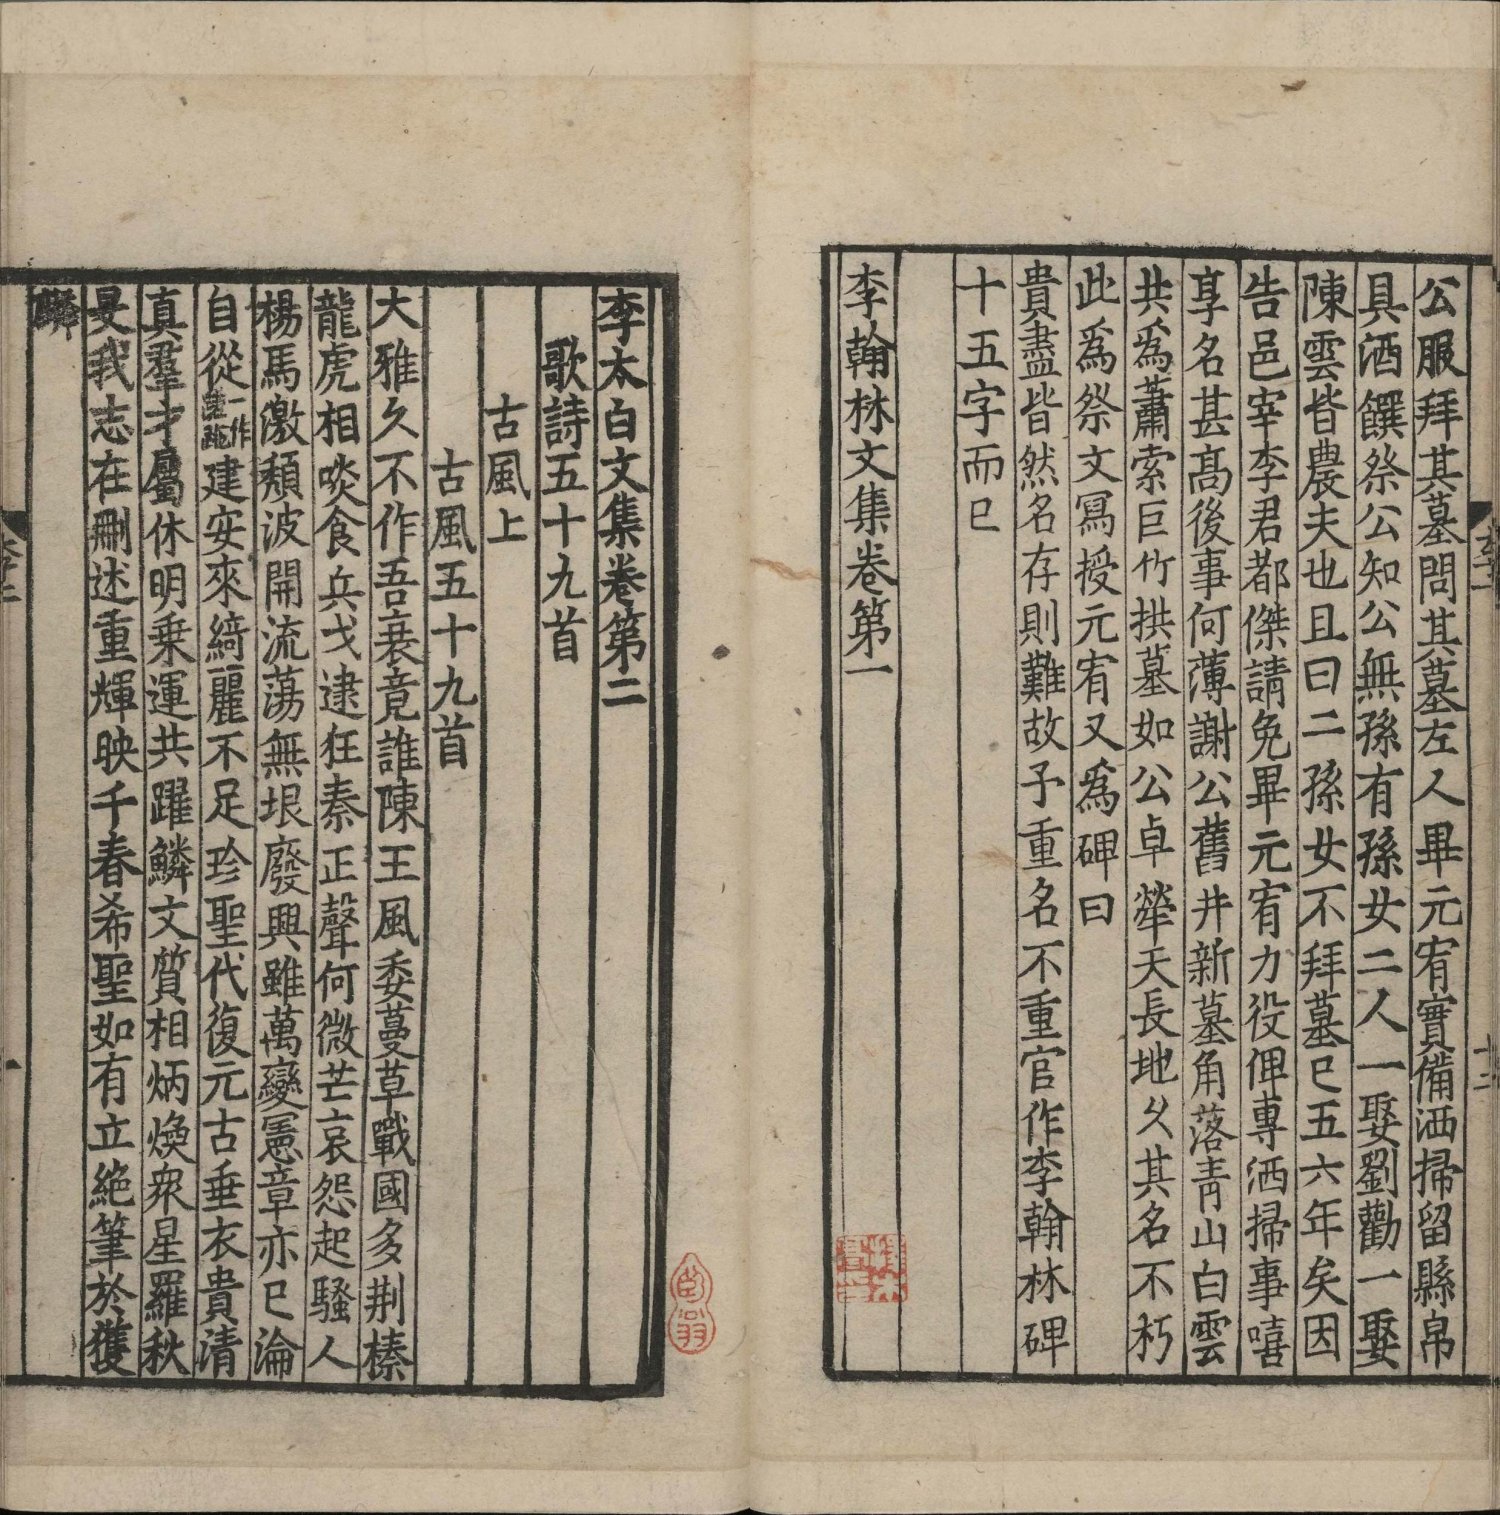 公服拜其墓問其墓左人畢元宥實備洒掃留縣帛
具酒饌祭公知公無孫有孫女二人一娶劉勸一娶
陳雲皆農夫也且曰二孫女不拜墓已五六年矣因
告邑宰李君都傑請免畢元宥力役俾專洒掃事嘻
享名甚髙後事何薄謝公舊井新墓角落青山白雲
共爲蕭索巨竹拱墓如公卓犖天長地久其名不朽
此爲祭文寫授元宥又爲碑曰
貴盡皆然名存則難故予重名不重官作李翰林碑
十五字而已
李翰林文集卷第一
李太白文集卷第二
歌詩五十九首
古風上
古風五十九首
大雅久不作吾衰竟誰陳王風委蔓草戰國多荆榛
龍虎相啖食兵戈逮狂秦正聲何微芒哀怨起騷人
楊馬激頽波開流蕩無垠廢興雖萬變憲章亦已淪
自從一作建安來綺麗不足珍聖代復元古垂衣貴清
真羣才屬休明乗運共躍鱗文質相炳煥衆星羅秋
旻我志在刪述重輝映千春希聖如有立絶筆於獲
麟